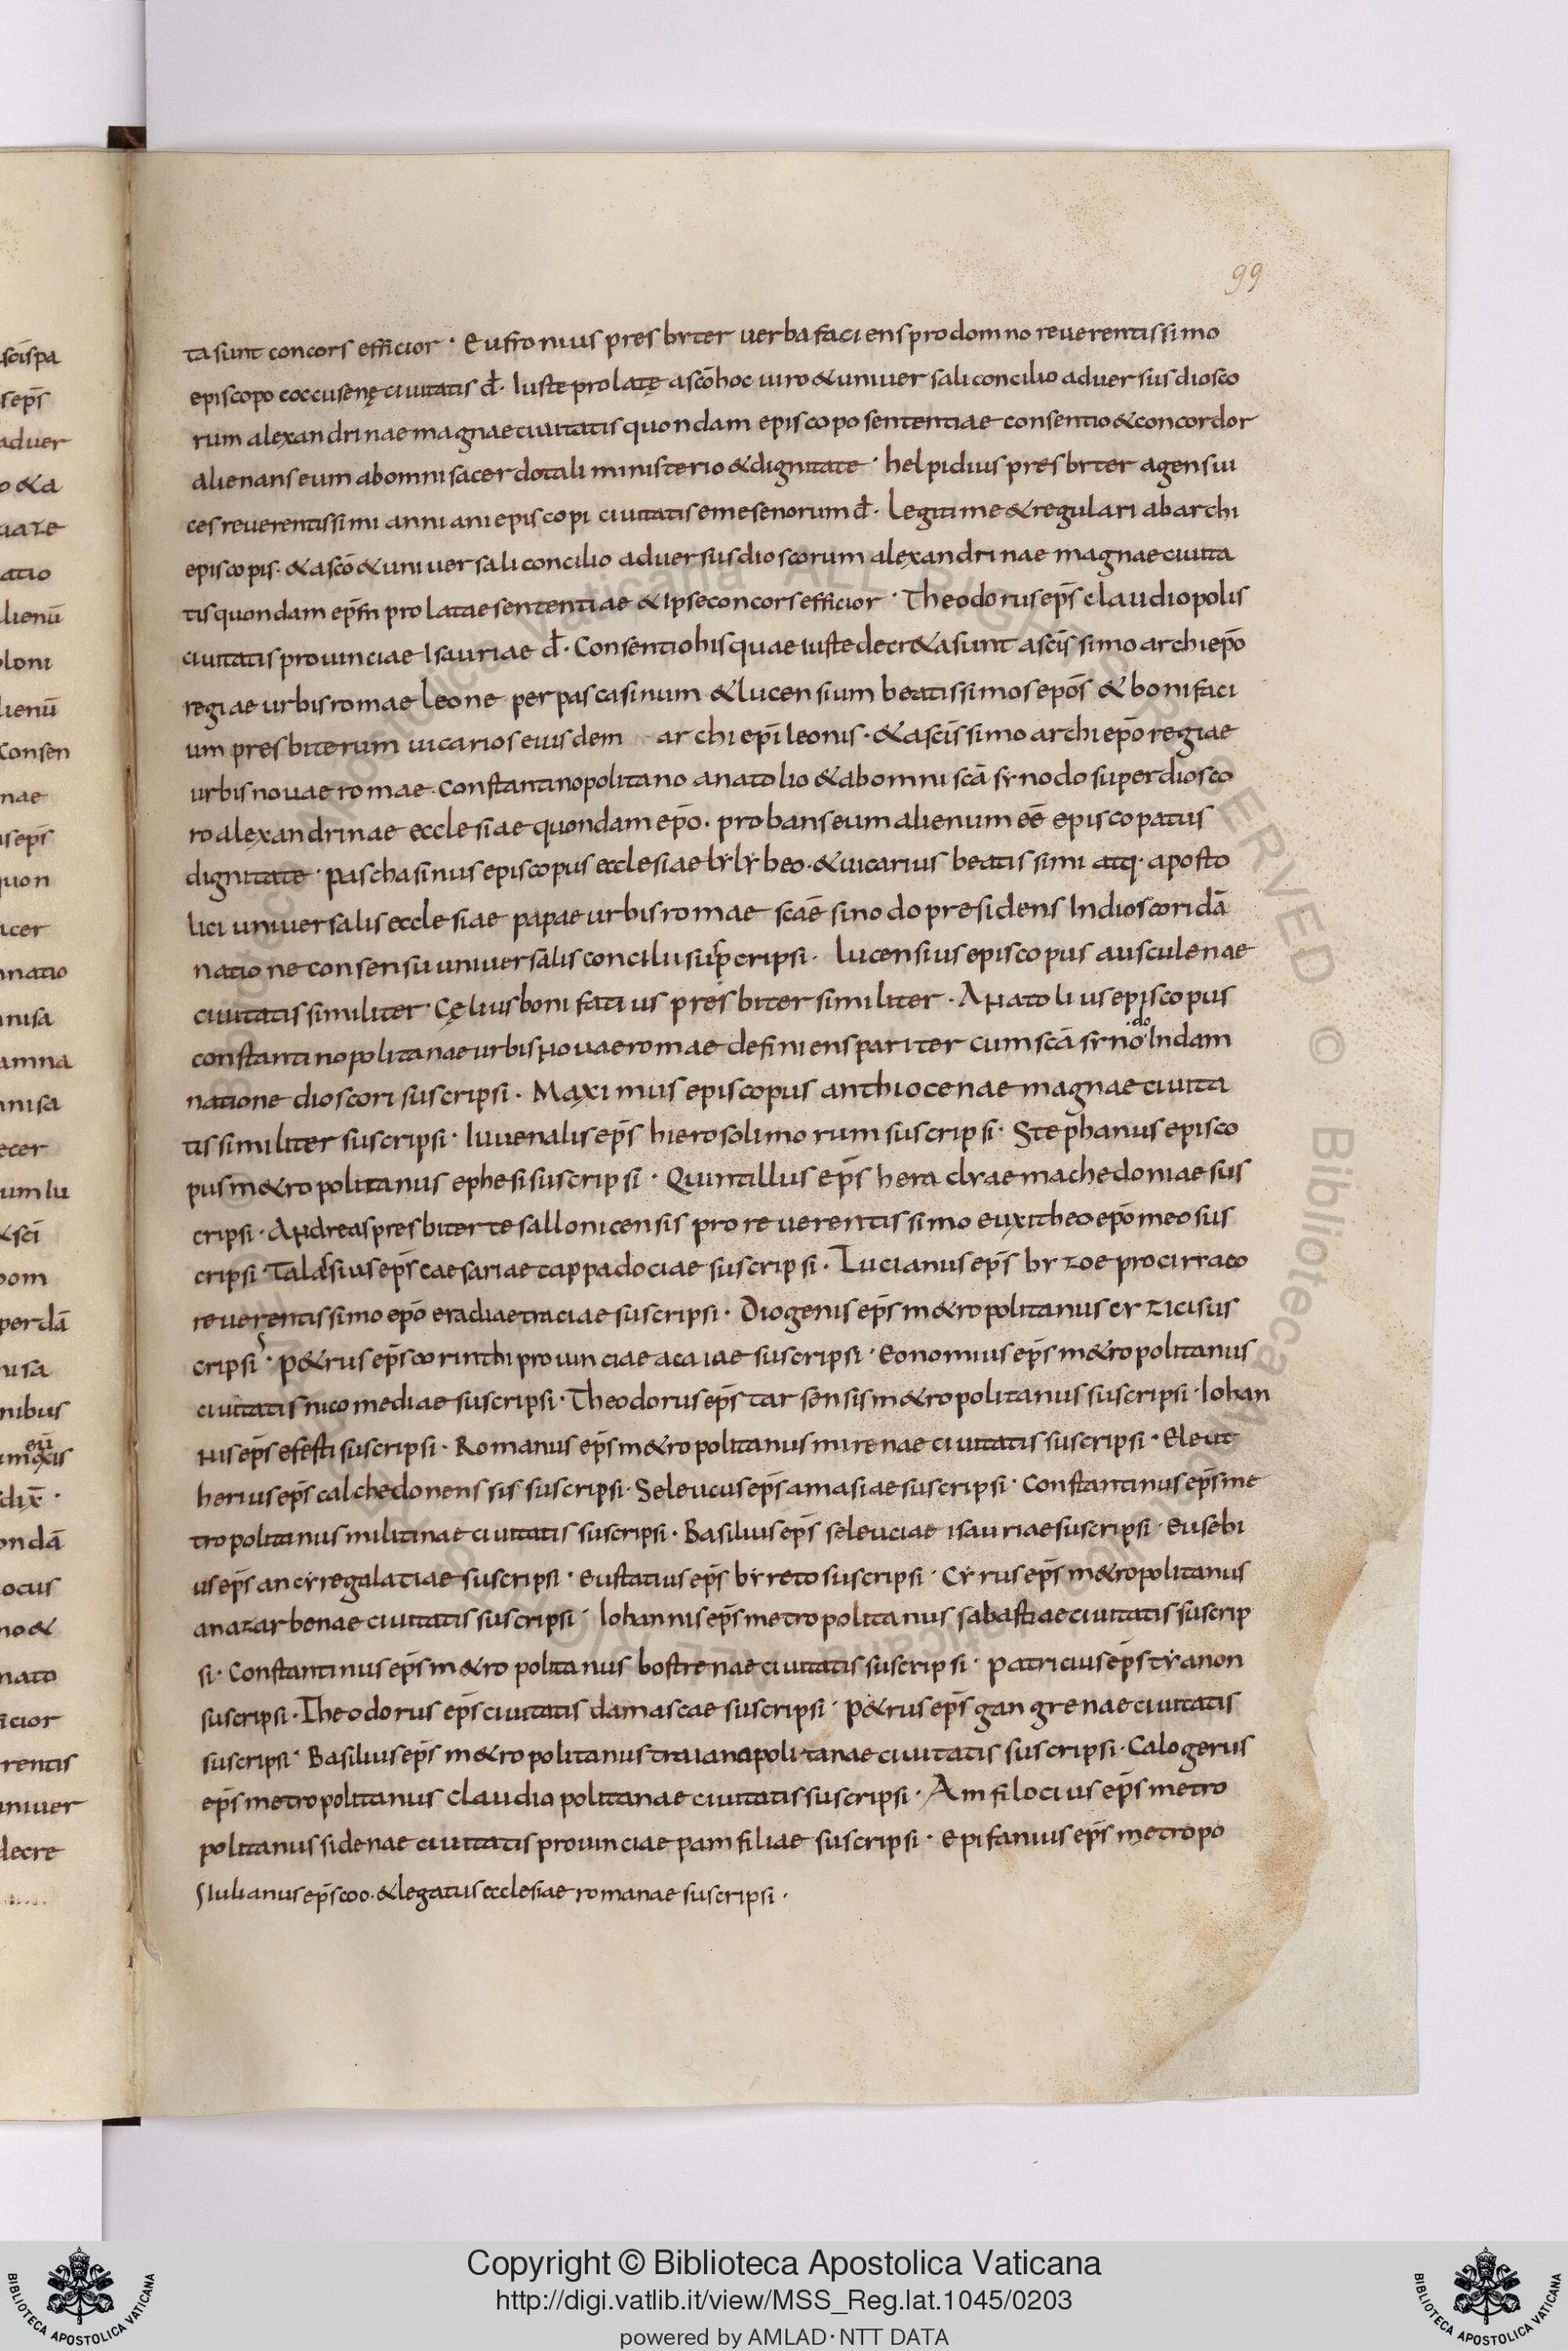 99
ta sunt concors efficior · Eufronius presbyter uerba faciens pro domno reuerentissimo
episcopo coccusenę ciuitatis đ · Iuste prolatę a scō hoc uiro & uniuersali concilio aduersus diosco
rum alexandrinae magnae ciuitatis quondam episcopo sententiae consentio & concordor
alienans eum ab omni sacerdotali ministerio & dignitate · helpidius presbyter agens ui
ces reuerentissimi anniani episcopi ciuitatis emesenorum đ · Legitime & regulari ab archi
episcopis · & a scō & uniuersali concilio aduersus dioscorum alexandrinae magnae ciuita
tis quondam ep̄m prolatae sententiae & Ipse concors efficior · Theodorus ep̄s claudiopolis
ciuitatis prouinciae Isauriae đ · Consentio his quae iuste decr&a sunt a scīssimo archiep̄o
regiae urbis romae leone per pascasinum & lucensium beatissimos ep̄os & bonifaci
um presbiterum uicarios eiusdem archiep̄i leonis · & a scīssimo archiep̄o regiae
urbis nouae romae · Constantinopolitano anatolio & ab omni scā synodo super diosco
ro alexandrinae ecclesiae quondam ep̄o · probans eum alienum eē episcopatus
dignitate · paschasinus episcopus ecclesiae lylybeo · & uicarius beatissimi atq · aposto
lici uniuersalis ecclesiae papae urbis romae scāe sinodo presidens In dioscori dā
natione consensu uniuersalis concilii suscripsi · Lucensius episcopus ausculenae
ciuitatis similiter · Cęlius bonifatius presbiter similiter · Anatolius episcopus
constantinopolitanae urbis nouae romae definiens pariter cum scā syno·do· In dam
natione dioscori suscripsi · Maximus episcopus anthiocenae magnae ciuita
tis similiter suscripsi · Iuuenalis ep̄s hierosolimorum suscripsi · Stephanus episco
pus m&ropolitanus ephesi suscripsi · Quintillus ep̄s heraclyae machedoniae sus
cripsi · Andreas presbiter tesallonicensis pro reuerentissimo euxitheo ep̄o meo sus
cripsi · Talassius ep̄s caesariae cappadociae suscripsi · Lucianus ep̄s byzoe pro cirraco
reuerentissimo ep̄o eracliae traciae suscripsi · Diogenis ep̄s m&ropolitanus cyzici sus
cripsi · P&rus ep̄s corinthi prouinciae acaiae suscripsi · Eonomius ep̄s m&ropolitanus
ciuitatis nicomediae suscripsi · Theodorus ep̄s tarsensis m&ropolitanus suscripsi · Iohan
nis ep̄s efesti suscripsi · Romanus ep̄s m&ropolitanus mirenae ciuitatis suscripsi · Eleut
herius ep̄s calchedonenssis suscripsi · Seleucus ep̄s amasiae suscripsi · Constantinus ep̄s me
tropolitanus militinae ciuitatis suscripsi · Basilius ep̄s seleuciae isauriae suscripsi · Eusebi
us ep̄s ancyre galatiae suscripsi · Eustatius ep̄s byreto suscripsi · Cyrus ep̄s m&ropolitanus
anazarbenae ciuitatis suscripsi · Iohannis ep̄s metropolitanus sabastiae ciuitatis suscrip
si · Constantinus ep̄s m&ropolitanus bostrenae ciuitatis suscripsi · Patricius ep̄s tyanon
suscripsi · Theodorus ep̄s ciuitatis damascae suscripsi · P&rus ep̄s gangrenae ciuitatis
suscripsi · Basilius ep̄s m&ropolitanus traianapolitanae ciuitatis suscripsi · Calogerus
ep̄s metropolitanus claudiapolitanae ciuitatis suscripsi · Amfilocius ep̄s metro
politanus sidenae ciuitatis prouinciae pamfiliae suscripsi · Epifanius ep̄s metropo
Iulianus ep̄s coo · & legatus ecclesiae romanae suscripsi ·
Copyright © Biblioteca Apostolica Vaticana
http://digi.vatlib.it/view/MSS_Reg.lat.1045/0203
powered by AMLAD · NTT DATA
BIBLIOTECA APOSTOLICA VATICANA
BIBLIOTECA APOSTOLICA VATICANA